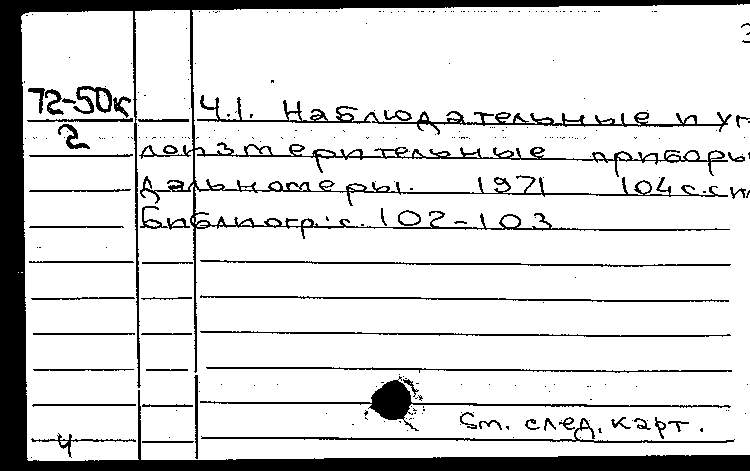 3
72-50к Ч.1. Наблюдательные и уг-
2 лоизмерительные приборы
дальномеры. 1971 104с.сил
Библиогр.:с.102-103
См. след. карт.
4